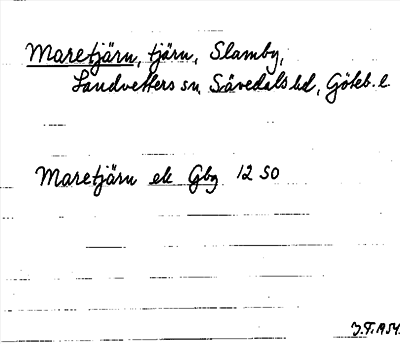 Maretjärn, tjärn, Slamby,
Landvetters sn, Sävedals hd, Göteb. l.
Maretjärn ek Gbg 12 SO
J.F. 1954.